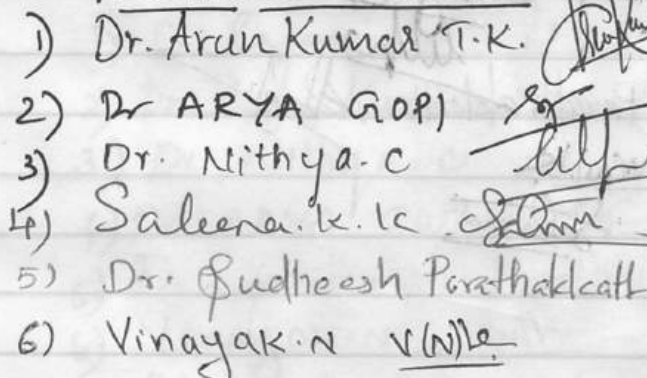 1) Dr. Arun Kumar T.K.
2) Dr ARYA GOPI
3) Dr. Nithya. C
4) Saleena. K. K
5) Dr. Sudheesh
6) Vinayak. N